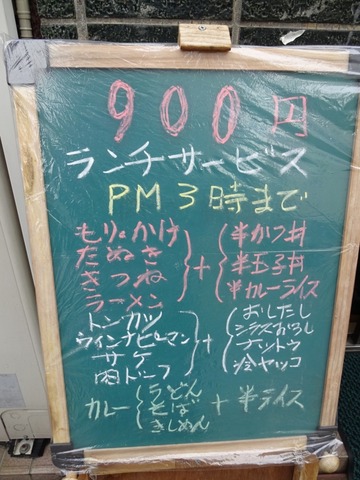 900円
ランチサービス
PM3時まで
もり・かけ
たぬき
きつね
ラーメン
+
半かつ丼
半玉子丼
半カレーライス
トンカツ
ウインナピーマン
サケ
肉ドーフ
+
おしたし
シラスおろし
ナットウ
冷ヤッコ
カレー
うどん
そば
きしめん
+半ライス